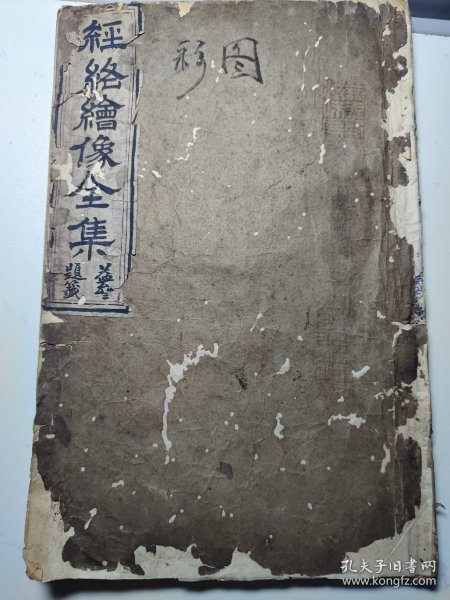 經絡繪像全集
題籤
彩图
孔夫子旧书网
www.kongfz.com